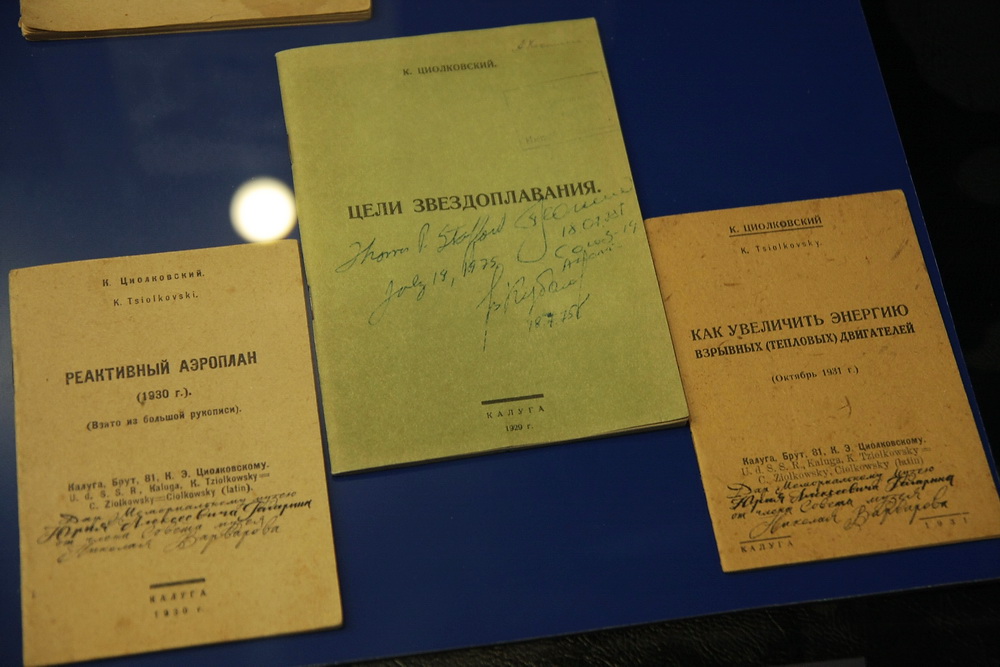 К. Циолковский.
K. Tsiolkovski.
РЕАКТИВНЫЙ АЭРОПЛАН
(1930 г.).
(Взято из большой рукописи).
Калуга, Брут, 81, К. Э. Циолковскому.
U. d. S. S. R., Kaluga, K. Tziolkowsky—
C. Ziolkowsky—Ciolkowsky (latin).
Дар Мемориальному музею
Юрия Алексеевича Гагарина
от члена Совета музея
Николая Варварова
КАЛУГА
1930 г.
К. ЦИОЛКОВСКИЙ.
ЦЕЛИ ЗВЕЗДОПЛАВАНИЯ.
Thomas P. Stafford
July 19, 1975
Союз-19
КАЛУГА
1929 г.
К. ЦИОЛКОВСКИЙ
K. Tsiolkovsky.
КАК УВЕЛИЧИТЬ ЭНЕРГИЮ
ВЗРЫВНЫХ (ТЕПЛОВЫХ) ДВИГАТЕЛЕЙ
(Октябрь 1931 г.)
Калуга, Брут, 81, К. Э. Циолковскому.
U. d. S. S. R., Kaluga, K. Tziolkowsky—
C. Ziolkowsky, Ciolkowsky (latin)
Дар Мемориальному музею
Юрия Алексеевича Гагарина
от члена Совета музея
Николая Варварова
КАЛУГА
1931